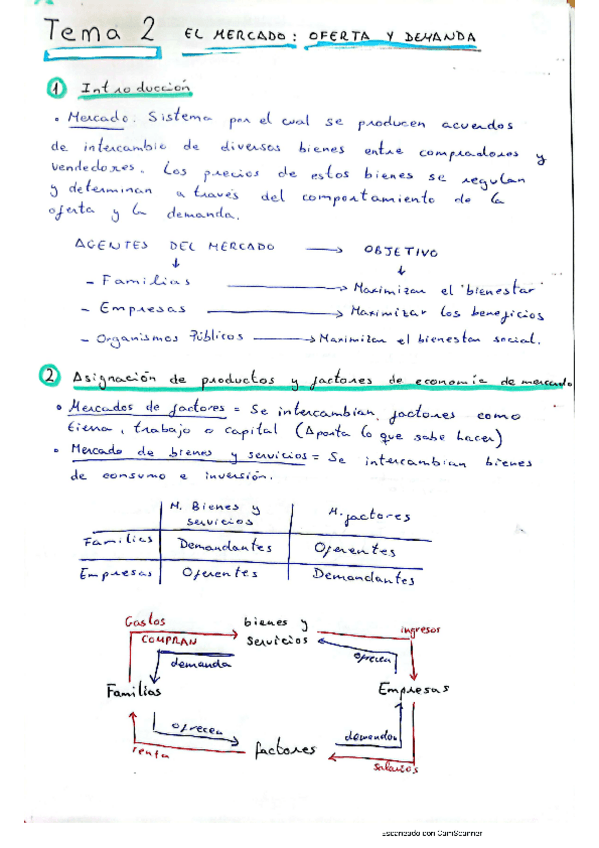 Tema 2 EL MERCADO: OFERTA Y DEMANDA
1 Introducción
• Mercado. Sistema por el cual se producen acuerdos
de intercambio de diversos bienes entre compradores y
vendedores. Los precios de estos bienes se regulan
y determinan a través del comportamiento de la
oferta y la demanda.
AGENTES DEL MERCADO → OBJETIVO
↓ ↓
- Familias → Maximizar el "bienestar"
- Empresas → Maximizar los beneficios
- Organismos Públicos → Maximizar el bienestar social.
2 Asignación de productos y factores de economía de mercado
• Mercados de factores = Se intercambian factores como
tierra, trabajo o capital (Aporta lo que sabe hacer)
• Mercado de bienes y servicios = Se intercambian bienes
de consumo e inversión.
M. Bienes y servicios M. factores
Familias Demandantes Oferentes
Empresas Oferentes Demandantes
Gastos bienes y ingresos
COMPRAN servicios
demanda ofrecen
Familias Empresas
ofrecen demandan
renta factores salarios
Escaneado con CamScanner